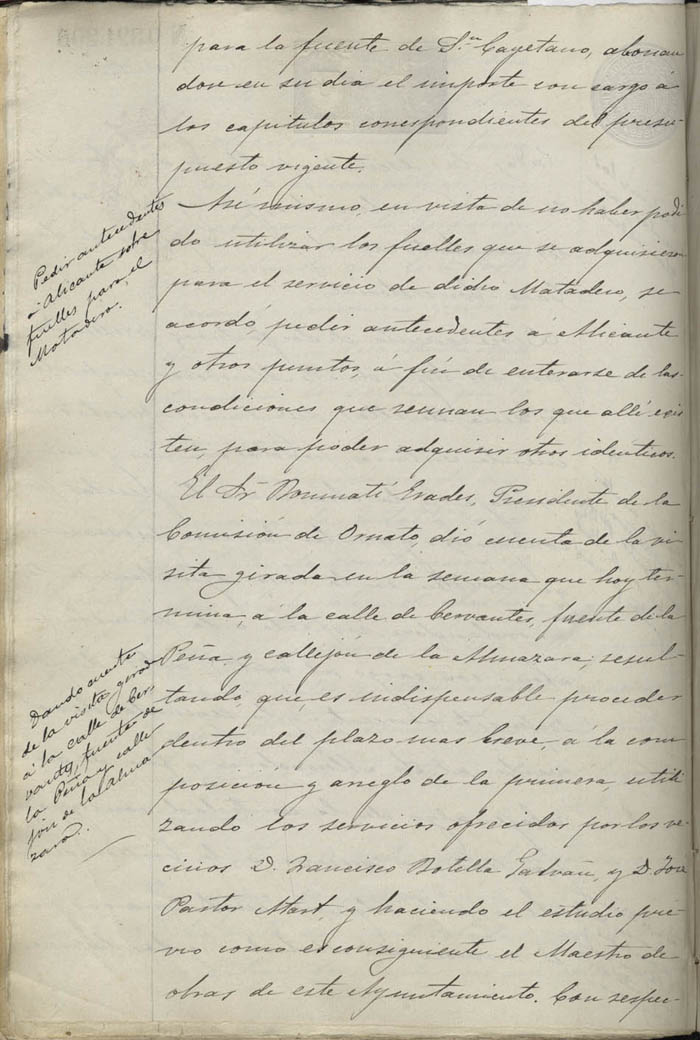 para la fuente de S.n Cayetano, abonan
dose en su dia el importe con cargo á
los capitulos correspondientes del presu-
puesto vigente.
Pedir antecedentes
á Alicante sobre
fuelles para el
Matadero.
Así mismo, en vista de no haber podi
do utilizar los fuelles que se adquirieron
para el servicio de dicho Matadero, se
acordó, pedir antecedentes á Alicante
y otros puntos, á fin de enterarse de las
condiciones que reunan los que allí exis
ten, para poder adquirir otros identicos.
El Sr Bonmatí Erades, Presidente de la
Comisión de Ornato, dió cuenta de la vi-
sita girada en la semana que hoy ter-
mina, á la calle de Cervantes, fuente de la
Peña y callejón de la Almazara; resul-
tando, que es indispensable proceder
dentro del plazo mas breve, á la com
posición y arreglo de la primera, utili
zando los servicios ofrecidos por los ve-
cinos D. Francisco Botella Galvañ, y D. José
Pastor Mart, y haciendo el estudio pre-
vio como es consiguiente el Maestro de
obras de este Ayuntamiento. Con respec-
Dando cuenta
de la visita girad
á la calle de Cer
vantes, fuente de
la Peña y calle
jón de la Alma
zara.